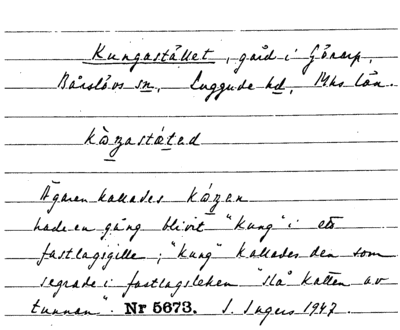 Kungastället, gård i Gånarp,
Bårslövs sn, Luggude hd, Mhs län.
kàŋastǽted
Ägaren kallades kóŋen
hade en gång blivit "kung" i ett
fastlagsgille; "kung" kallades den som
segrade i fastlagsleken "slå katten av
tunnan". Nr 5673. I. Ingers 1947.